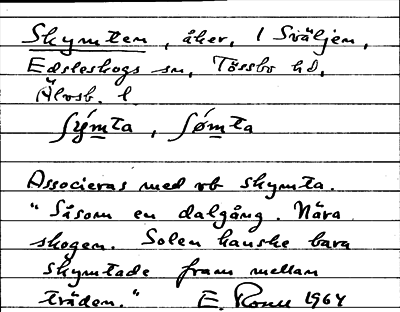 Skymten, åker, 1 Sväljen,
Edsleskogs sn, Tössbo hd,
Älvsb. l.
ʃýmta, ʃǿmta
Associeras med vb skymta.
"Såsom en dalgång. Nära
skogen. Solen kanske bara
skymtade fram mellan
träden." E. 1964